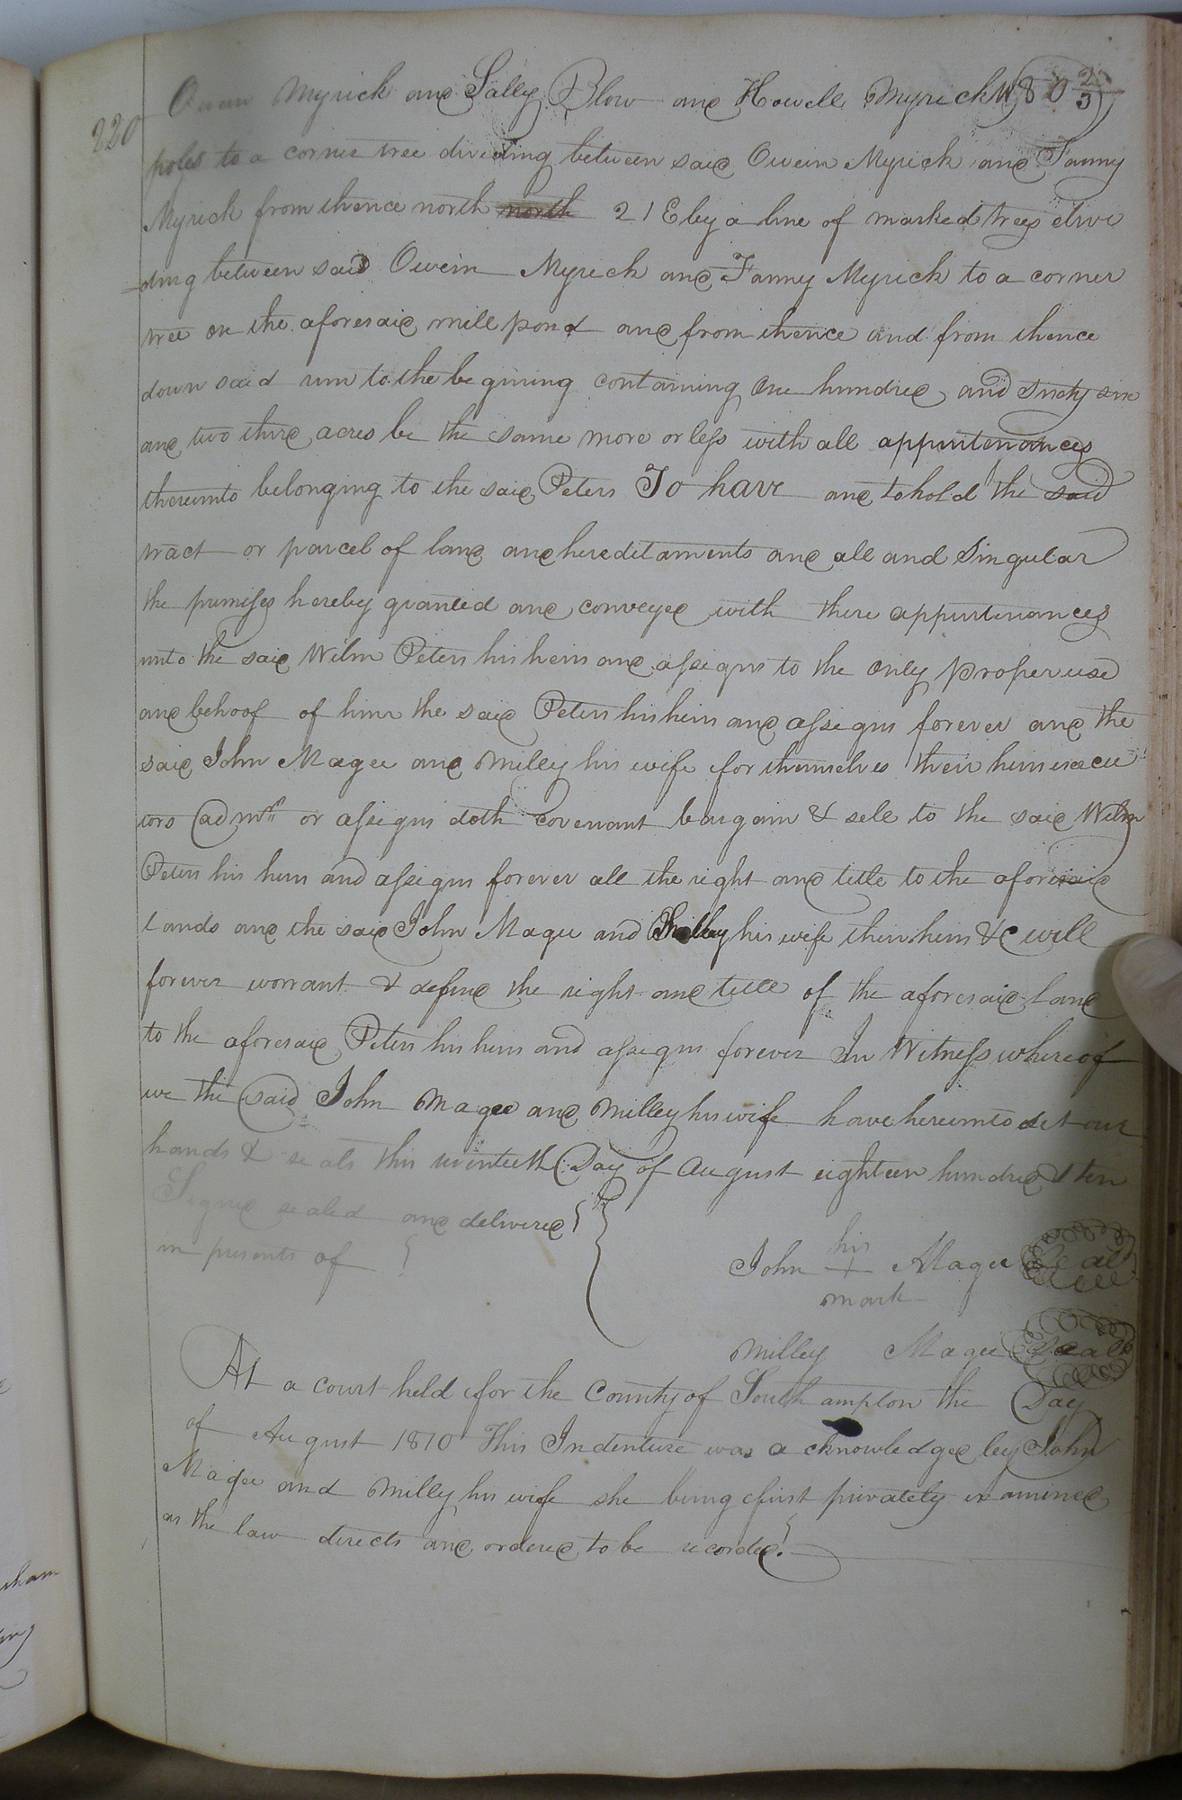 220
Owein Myrick and Sally Blow and Howell Myrick W 80 2/3
poles to a corner tree dividing between said Owein Myrick and Fanny
Myrick from thence north north 21 E by a line of marked trees divi
ding between said Owein Myrick and Fanny Myrick to a corner
tree on the aforesaid mill pond and from thence and from thence
down said run to the begining containing One hundred and Sixty six
and two third acres be the same more or less with all appurtenances
thereunto belonging to the said Peters To have and to hold the said
tract or parcel of land and hereditaments and all and Singular
the premises hereby granted and conveyed with there appurtenances
unto the said Wilm Peters his heirs and assigns to the only proper use
and behoof of him the said Peters his heirs and assigns forever and the
said John Magee and Milley his wife for themselves their heirs execu
tors admrs or assigns doth covenant bargain & sell to the said Wilm
Peters his heirs and assigns forever all the right and title to the aforesaid
Lands and the said John Magee and Milley his wife their heirs &c will
forever worrant & defend the right and title of the aforesaid Land
to the aforesaid Peters his heirs and assigns forever In Witness whereof
we the said John Magee and Milley his wife have hereunto set our
hands & seals this Day of August eighteen hundred & ten
Signed sealed and delivered
in presents of
his
John + Magee Seal
mark
Milley Magee Seal
At a court held for the County of Southampton the Day
of August 1810 This Indenture was acknowledged by John
Magee and Milly his wife she being first privately examined
as the law directs and ordered to be recorded.